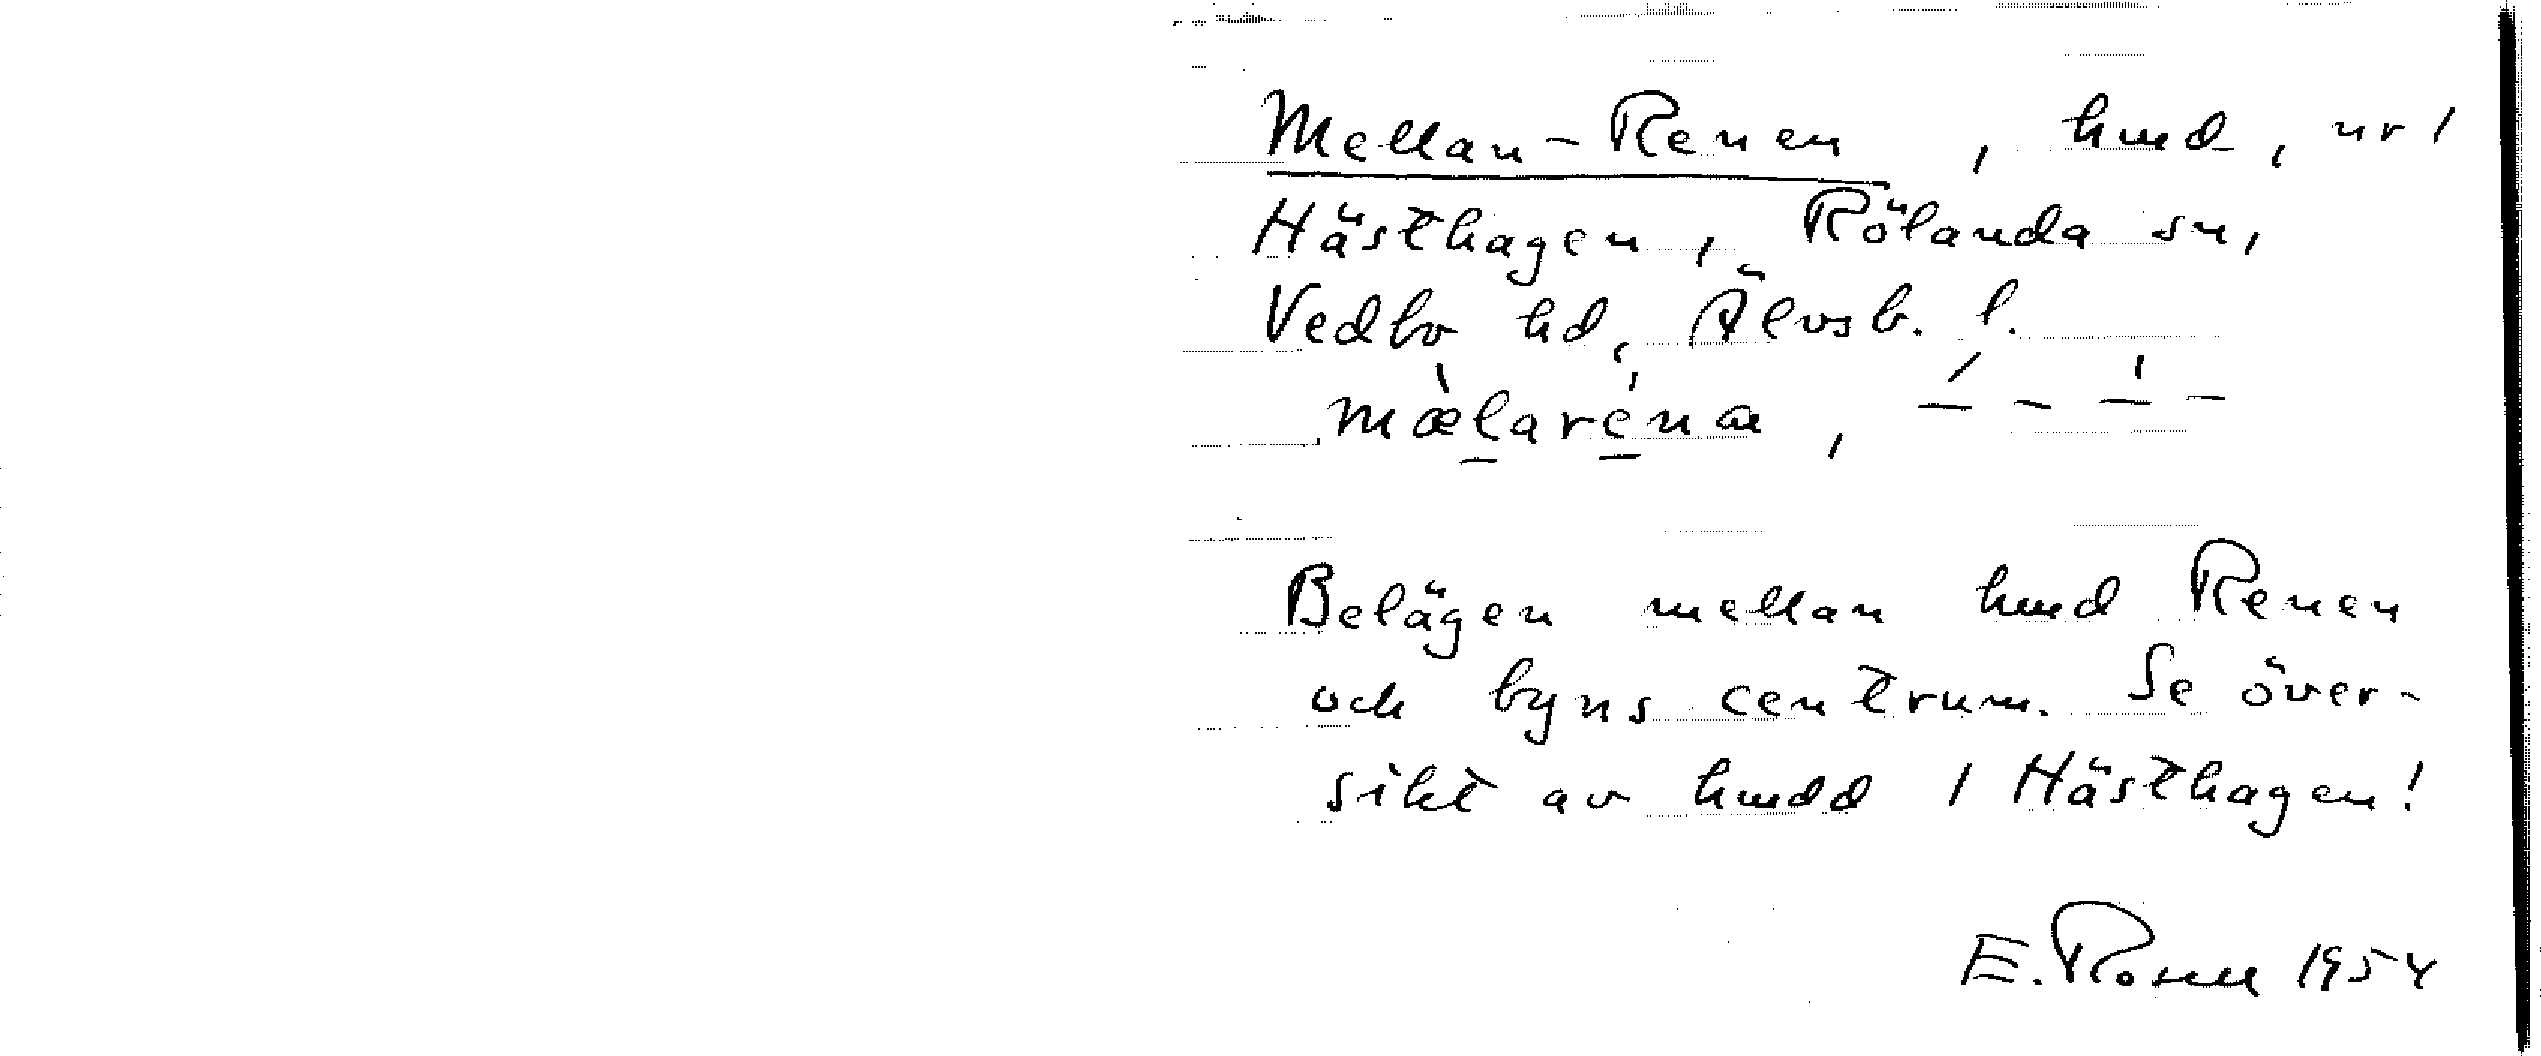 Mellan-Renen, hmd, ur 1
Hästhagen, Rölanda sn,
Vedbo hd, Älvsb. l.
mæ̀laréna, — – — –
Belägen mellan hmd Renen
och byns centrum. Se över-
sikt av hmdd 1 Hästhagen!
E. Rosell 1954